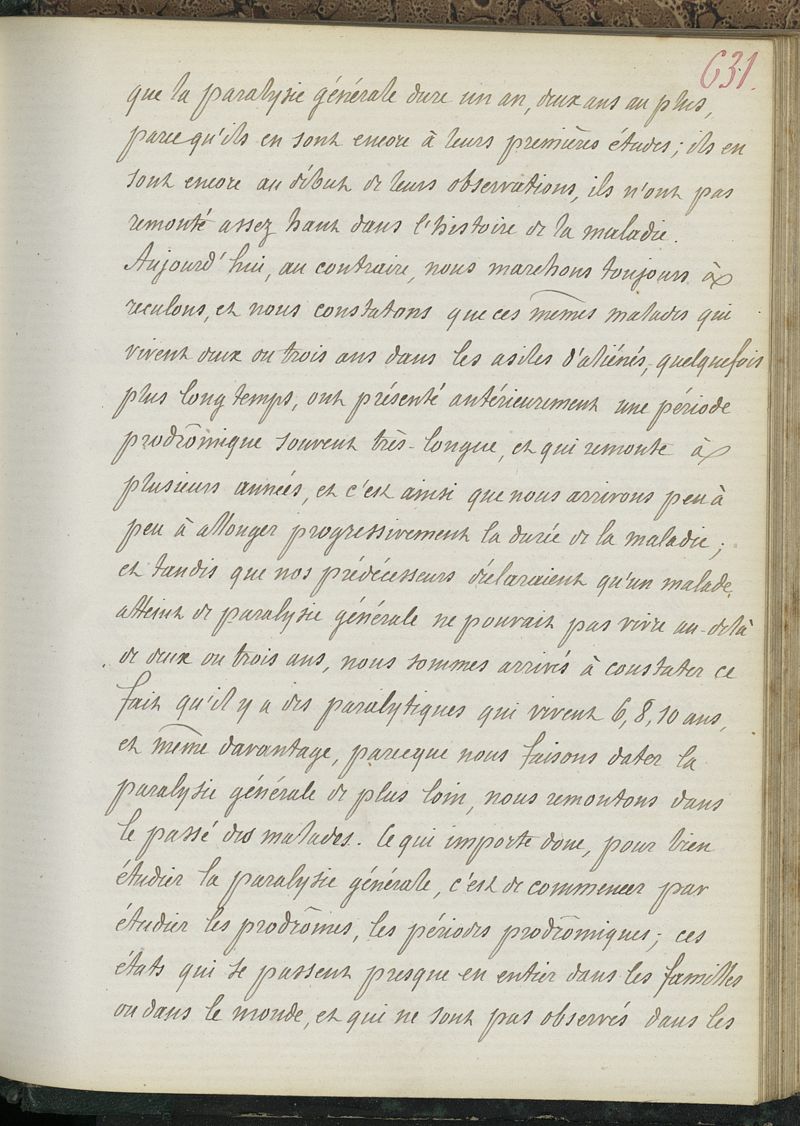 631.
que la paralysie générale dure un an, deux ans au plus,
parce qu'ils en sont encore à leurs premières études; ils en
sont encore au début de leurs observations, ils n'ont pas
remonté assez haut dans l'histoire de la maladie.
Aujourd'hui, au contraire, nous marchons toujours à
reculons, et nous constatons que ces mêmes malades qui
vivent deux ou trois ans dans les asiles d'aliénés, quelquefois
plus longtemps, ont présenté antérieurement une période
prodrômique souvent très-longue, et qui remonte à
plusieurs années, et c'est ainsi que nous arrivons peu à
peu à allonger progressivement la durée de la maladie;
et tandis que nos prédécesseurs déclaraient qu'un malade
atteint de paralysie générale ne pouvait pas vivre au-delà
de deux ou trois ans, nous sommes arrivés à constater ce
fait qu'il y a des paralytiques qui vivent 6, 8, 10 ans,
et même davantage, parceque nous faisons dater la
paralysie générale de plus loin, nous remontons dans
le passé des malades. Ce qui importe donc, pour bien
étudier la paralysie générale, c'est de commencer par
étudier les prodrômes, les périodes prodrômiques; ces
états qui se passent presque en entier dans les familles
ou dans le monde, et qui ne sont pas observés dans les